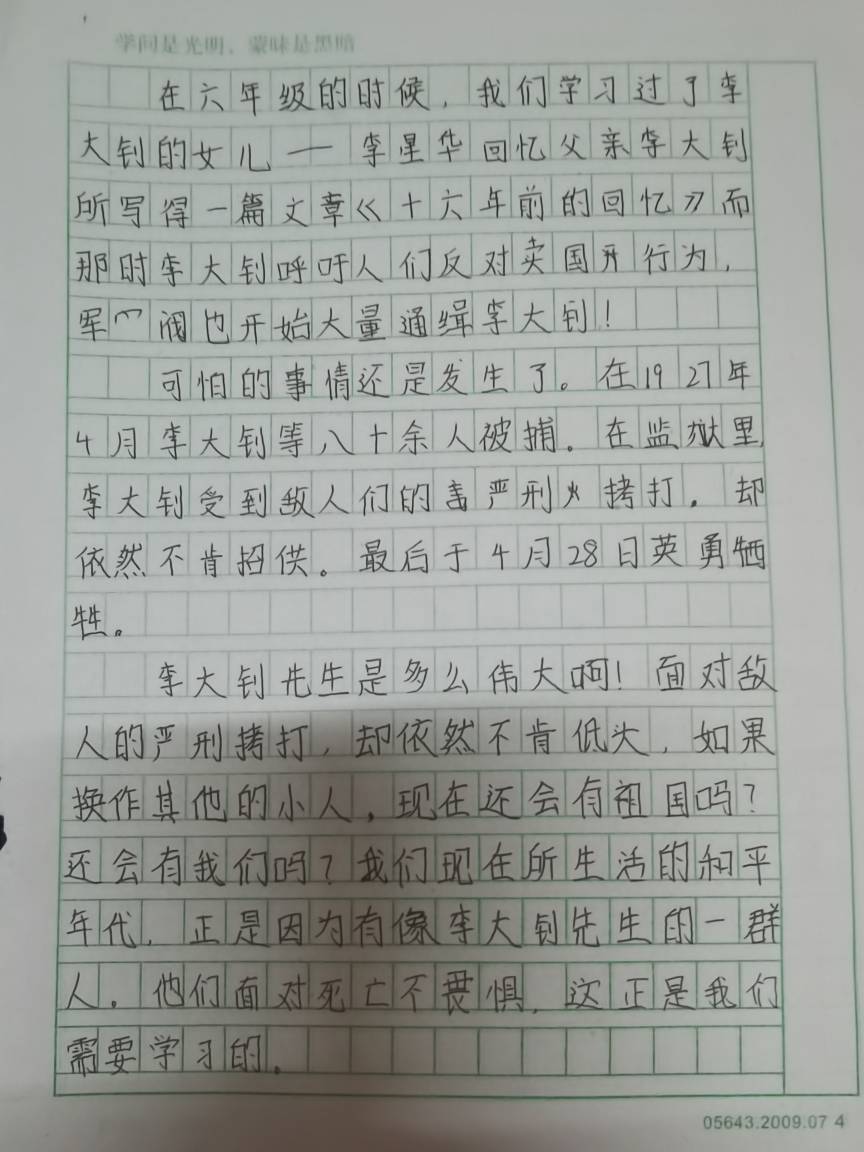 学问是光明，蒙昧是黑暗
在六年级的时候，我们学习过了李
大钊的女儿——李星华回忆父亲李大钊
所写得一篇文章《十六年前的回忆》而
那时李大钊呼吁人们反对卖国开行为，
军阀也开始大量通缉李大钊！
可怕的事情还是发生了。在1927年
4月李大钊等八十余人被捕。在监狱里，
李大钊受到敌人们的严刑拷打。却
依然不肯招供。最后于4月28日英勇牺
牲。
李大钊先生是多么伟大啊！面对敌
人的严刑拷打，却依然不肯低头，如果
换作其他的小人，现在还会有祖国吗？
还会有我们吗？我们现在所生活的和平
年代，正是因为有像李大钊先生的一群
人。他们面对死亡不畏惧，这正是我们
需要学习的。
05643.2009.07 4